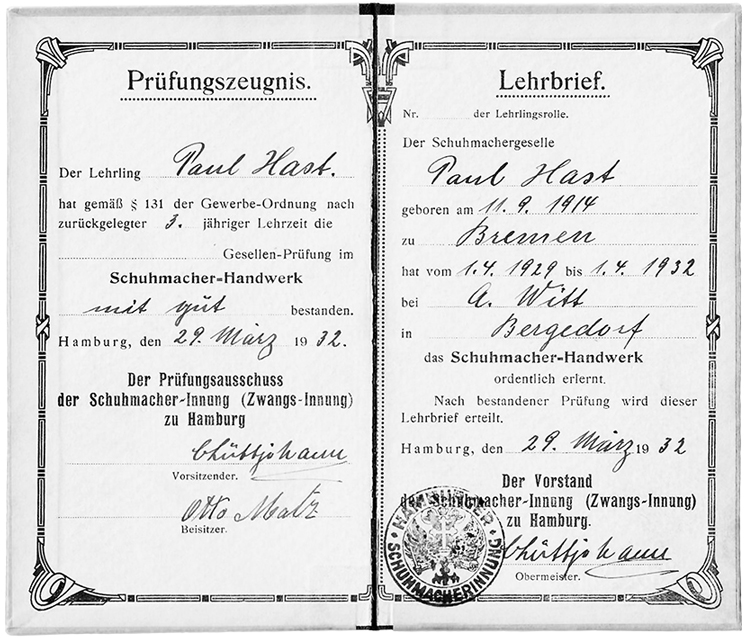 Prüfungszeugnis.
Der Lehrling Paul Hast.
hat gemäß § 131 der Gewerbe-Ordnung nach
zurückgelegter 3. jähriger Lehrzeit die
Gesellen-Prüfung im
Schuhmacher-Handwerk
mit gut bestanden.
Hamburg, den 29. März 1932.
Der Prüfungsausschuss
der Schuhmacher-Innung (Zwangs-Innung)
zu Hamburg
Vorsitzender.
Otto Matz
Beisitzer.
Lehrbrief.
Nr. der Lehrlingsrolle.
Der Schuhmachergeselle
Paul Hast
geboren am 11. 9. 1914
zu Bremen
hat vom 1. 4. 1929 bis 1. 4. 1932
bei A. Witt
in Bergedorf
das Schuhmacher-Handwerk
ordentlich erlernt.
Nach bestandener Prüfung wird dieser
Lehrbrief erteilt.
Hamburg, den 29. März 1932
Der Vorstand
der Schuhmacher-Innung (Zwangs-Innung)
zu Hamburg.
Obermeister.
HAMBURGER
SCHUHMACHERINNUNG